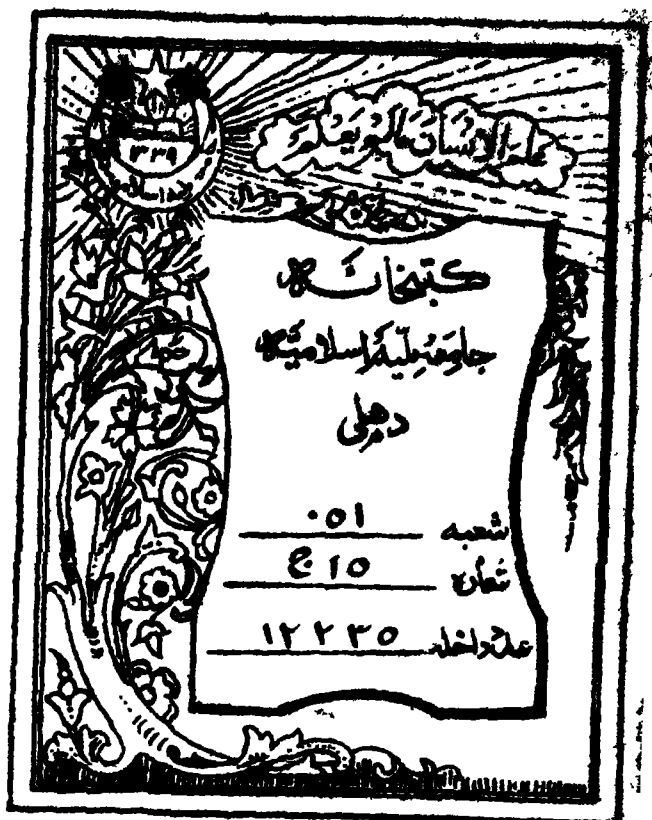 ۱۳۳۹
علم الانسان مالم یعلم
کتبخانہ
جامعہ ملیہ اسلامیہ
دہلی
شعبہ ۰۵۱
شمارہ ۱۵ ج
عدد داخلہ ۱۲۲۳۵